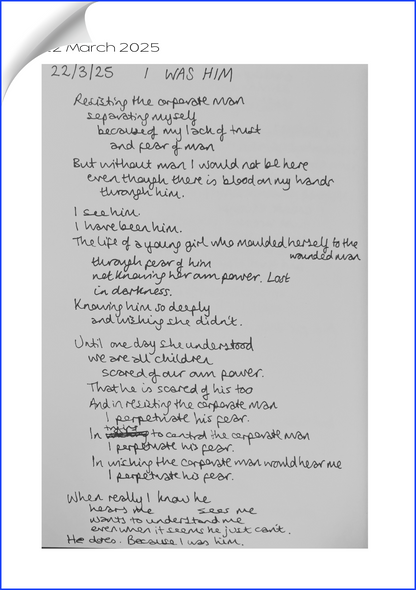 2 March 2025
22/3/25 I WAS HIM
Resisting the corporate man
separating myself
because of my lack of trust
and fear of man
But without man I would not be here
even though there is blood on my hands
through him.
I see him.
I have been him.
The life of a young girl who moulded herself to the
wounded man
through fear of him
not knowing her own power. Lost
in darkness.
Knowing him so deeply
and wishing she didn't.
Until one day she understood
we are all children
scared of our own power.
That he is scared of his too
And in resisting the corporate man
I perpetuate his fear.
In trying to control the corporate man
I perpetuate his fear.
In wishing the corporate man would hear me
I perpetuate his fear.
When really I know he
hears me sees me
wants to understand me
even when it seems he just can't.
He does. Because I was him.